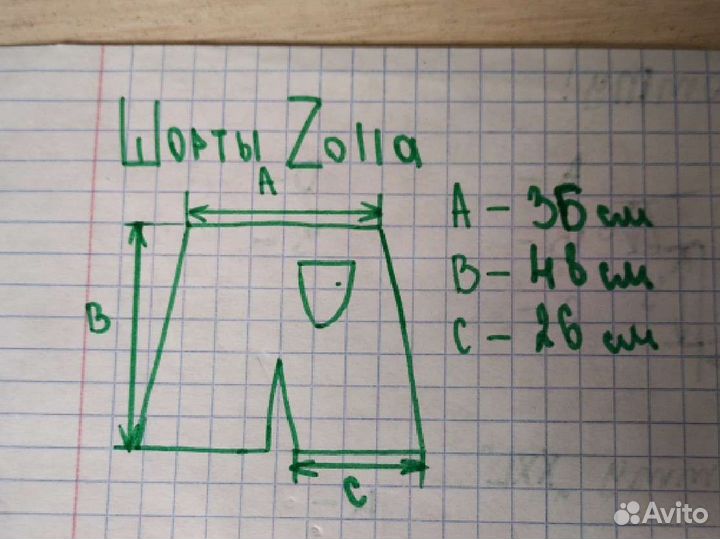 Шорты Zolla
A
B
C
A - 36 см
B - 48 см
C - 26 см
Avito